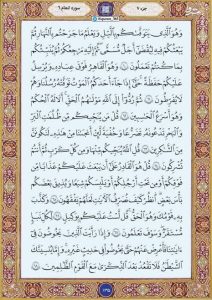 جزء ۷
سوره انعام ۶
وَهُوَ الَّذِي يَتَوَفَّاكُم بِاللَّيْلِ وَيَعْلَمُ مَا جَرَحْتُم بِالنَّهَارِ ثُمَّ
يَبْعَثُكُمْ فِيهِ لِيُقْضَىٰ أَجَلٌ مُّسَمًّى ثُمَّ إِلَيْهِ مَرْجِعُكُمْ ثُمَّ يُنَبِّئُكُم
بِمَا كُنتُمْ تَعْمَلُونَ ﴿٦٠﴾ وَهُوَ الْقَاهِرُ فَوْقَ عِبَادِهِ وَيُرْسِلُ
عَلَيْكُمْ حَفَظَةً حَتَّىٰ إِذَا جَاءَ أَحَدَكُمُ الْمَوْتُ تَوَفَّتْهُ رُسُلُنَا وَهُمْ
لَا يُفَرِّطُونَ ﴿٦١﴾ ثُمَّ رُدُّوا إِلَى اللَّهِ مَوْلَاهُمُ الْحَقِّ أَلَا لَهُ الْحُكْمُ
وَهُوَ أَسْرَعُ الْحَاسِبِينَ ﴿٦٢﴾ قُلْ مَن يُنَجِّيكُم مِّن ظُلُمَاتِ الْبَرِّ
وَالْبَحْرِ تَدْعُونَهُ تَضَرُّعًا وَخُفْيَةً لَّئِنْ أَنجَانَا مِنْ هَٰذِهِ لَنَكُونَنَّ
مِنَ الشَّاكِرِينَ ﴿٦٣﴾ قُلِ اللَّهُ يُنَجِّيكُم مِّنْهَا وَمِن كُلِّ كَرْبٍ ثُمَّ أَنتُمْ
تُشْرِكُونَ ﴿٦٤﴾ قُلْ هُوَ الْقَادِرُ عَلَىٰ أَن يَبْعَثَ عَلَيْكُمْ عَذَابًا مِّن
فَوْقِكُمْ أَوْ مِن تَحْتِ أَرْجُلِكُمْ أَوْ يَلْبِسَكُمْ شِيَعًا وَيُذِيقَ بَعْضَكُم
بَأْسَ بَعْضٍ انظُرْ كَيْفَ نُصَرِّفُ الْآيَاتِ لَعَلَّهُمْ يَفْقَهُونَ ﴿٦٥﴾ وَكَذَّبَ
بِهِ قَوْمُكَ وَهُوَ الْحَقُّ قُل لَّسْتُ عَلَيْكُم بِوَكِيلٍ ﴿٦٦﴾ لِّكُلِّ نَبَإٍ
مُّسْتَقَرٌّ وَسَوْفَ تَعْلَمُونَ ﴿٦٧﴾ وَإِذَا رَأَيْتَ الَّذِينَ يَخُوضُونَ فِي
آيَاتِنَا فَأَعْرِضْ عَنْهُمْ حَتَّىٰ يَخُوضُوا فِي حَدِيثٍ غَيْرِهِ وَإِمَّا يُنسِيَنَّكَ
الشَّيْطَانُ فَلَا تَقْعُدْ بَعْدَ الذِّكْرَىٰ مَعَ الْقَوْمِ الظَّالِمِينَ ﴿٦٨﴾
۱۳۵